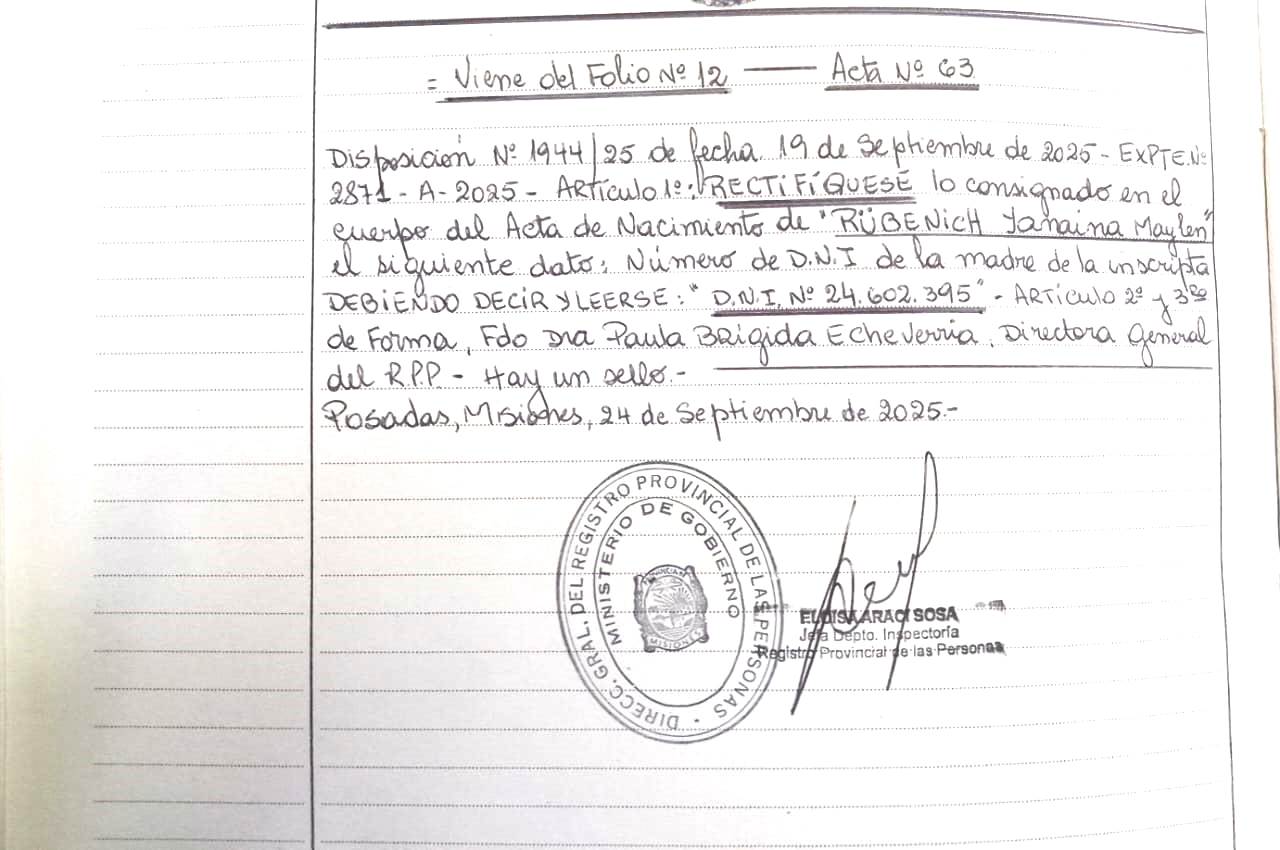 = Viene del Folio Nº 12 —— Acta Nº 63
Disposición Nº 1944/25 de fecha 19 de Septiembre de 2025 - EXPTE.Nº
2871 - A - 2025 - ARTÍCULO 1º: RECTIFÍQUESÉ lo consignado en el
cuerpo del Acta de Nacimiento de "RÜBENICH Janaina Maylen"
el siguiente dato: Número de D.N.I de la madre de la inscripta
DEBIENDO DECIR Y LEERSE: "D.N.I. Nº 24.602.395" - ARTÍCULO 2º y 3ero
de Forma, Fdo Dra Paula BRígida Echeverria, Directora General
del R.P.P. - Hay un sello.-
Posadas, Misiones, 24 de Septiembre de 2025.-
DIRECC. GRAL. DEL REGISTRO PROVINCIAL DE LAS PERSONAS
MINISTERIO DE GOBIERNO
MISIONES
ELOISA ARACI SOSA
Jefa Depto. Inspectoría
Registro Provincial de las Personas